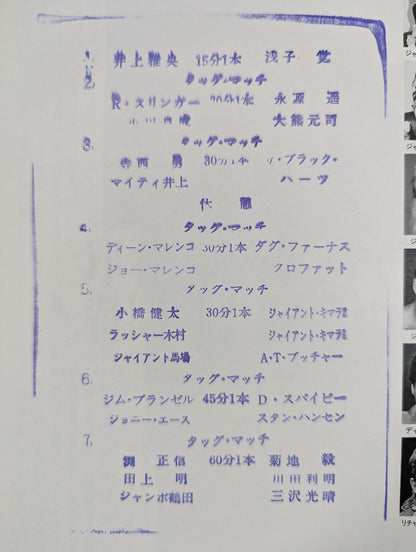 1. 井上雅央 15分1本 浅子 覚
2. タッグ・マッチ
R・スリンガー 20分1本 永源 遥
大熊元司
3. タッグ・マッチ
寺西 勇 30分1本 ブラック・
マイティ井上 ハーツ
休憩
4. タッグ・マッチ
ディーン・マレンコ 30分1本 ダグ・ファーナス
ジョー・マレンコ クロファット
5. タッグ・マッチ
小橋健太 30分1本 ジャイアント・キマラ
ラッシャー木村 ジャイアント・キマラ
ジャイアント馬場 A・T・ブッチャー
6. タッグ・マッチ
ジム・ブランゼル 45分1本 D・スパイビー
ジョニー・エース スタン・ハンセン
7. タッグ・マッチ
渕 正信 60分1本 菊地 毅
田上 明 川田利明
ジャンボ鶴田 三沢光晴
リチャ